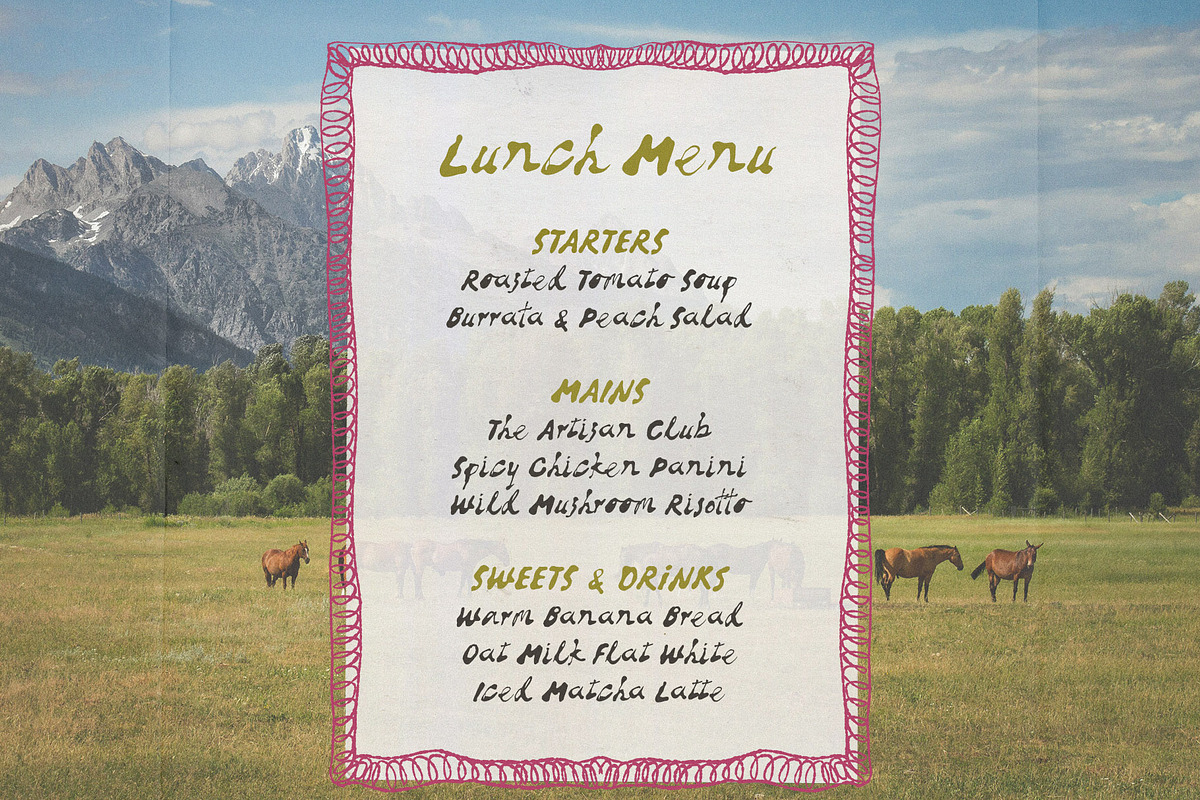 Lunch Menu
STARTERS
Roasted Tomato Soup
Burrata & Peach Salad
MAINS
The Artisan Club
Spicy Chicken Panini
Wild Mushroom Risotto
SWEETS & DRiNKS
Warm Banana Bread
Oat Milk Flat White
Iced Matcha Latte